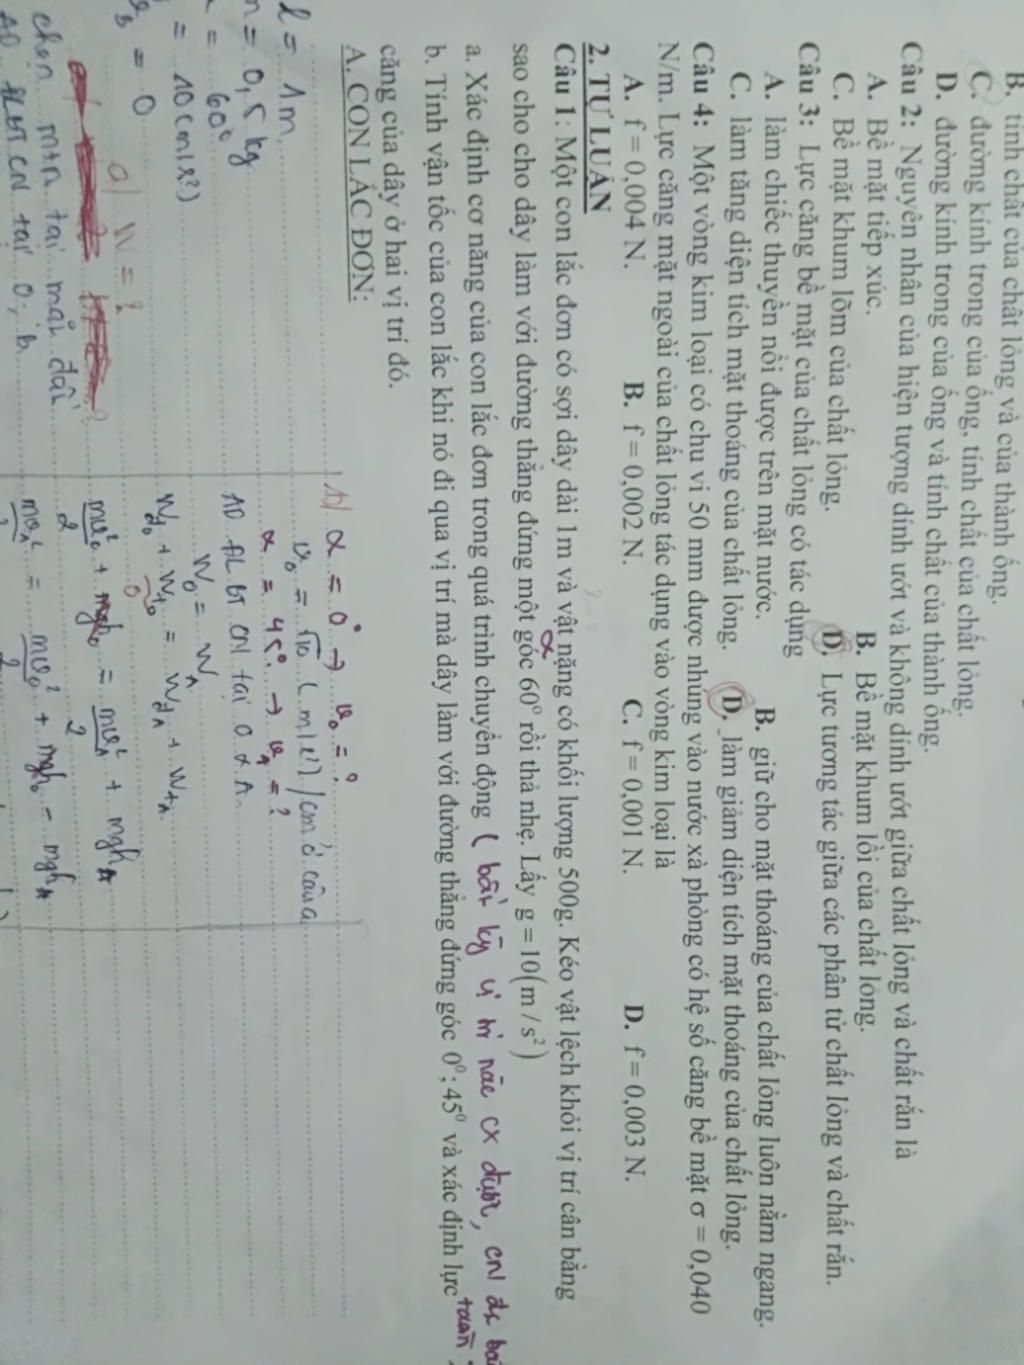 B. tính chất của chất lỏng và của thành ống.
C. đường kính trong của ống, tính chất của chất lỏng.
D. đường kính trong của ống và tính chất của thành ống.
Câu 2: Nguyên nhân của hiện tượng dính ướt và không dính ướt giữa chất lỏng và chất rắn là
A. Bề mặt tiếp xúc. B. Bề mặt khum lồi của chất lỏng.
C. Bề mặt khum lõm của chất lỏng. D. Lực tương tác giữa các phân tử chất lỏng và chất rắn.
Câu 3: Lực căng bề mặt của chất lỏng có tác dụng
A. làm chiếc thuyền nổi được trên mặt nước. B. giữ cho mặt thoáng của chất lỏng luôn nằm ngang.
C. làm tăng diện tích mặt thoáng của chất lỏng. D. làm giảm diện tích mặt thoáng của chất lỏng.
Câu 4: Một vòng kim loại có chu vi 50 mm được nhúng vào nước xà phòng có hệ số căng bề mặt σ = 0,040
N/m. Lực căng mặt ngoài của chất lỏng tác dụng vào vòng kim loại là
A. f = 0,004 N. B. f = 0,002 N. C. f = 0,001 N. D. f = 0,003 N.
2. TỰ LUẬN
Câu 1: Một con lắc đơn có sợi dây dài 1m và vật nặng có khối lượng 500g. Kéo vật lệch khỏi vị trí cân bằng
α
sao cho cho dây làm với đường thẳng đứng một góc 60⁰ rồi thả nhẹ. Lấy g = 10(m / s²)
a. Xác định cơ năng của con lắc đơn trong quá trình chuyển động ( bất kỳ vị trí nào cx được, cn đc
b. Tính vận tốc của con lắc khi nó đi qua vị trí mà dây làm với đường thẳng đứng góc 0⁰; 45⁰ và xác định lực
căng của dây ở hai vị trí đó.
A. CON LẮC ĐƠN:
l = 1m
m = 0,5 kg
= 60⁰
= 10 (m/s²)
= 0
a) W = ?
chọn mtn tại mặt đất
AD ĐLBT CN tại O, B.
b) α = 0° → v₀ = ?
v₀ = √10 (m/s) / cm ở câu a
α = 45° → v_A = ?
AD ĐLBT CN tại O & A
W₀ = W_A
W_đ₀ + W_t₀ = W_đA + W_tA
0
mv₀²/2 + mgh₀ = mv_A²/2 + mgh_A
mv_A²/2 = mv₀²/2 + mgh₀ - mgh_A